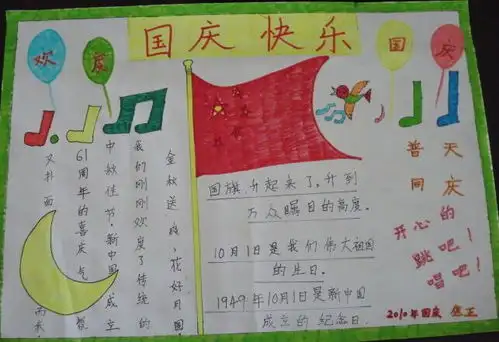 国庆 快乐
欢
度
国
庆
金秋送 花好月圆
我们刚刚欢度了传统的
中秋佳节,新中国成立
61周年的喜庆气
又扑面 而来
国旗升起来了,升到
万众瞩目的高度。
10月1日是我们伟大祖国
的生日。
1949年10月1日是新中国
成立的纪念日.
普天
同庆
开心的
跳吧!
唱吧!
2010年国庆